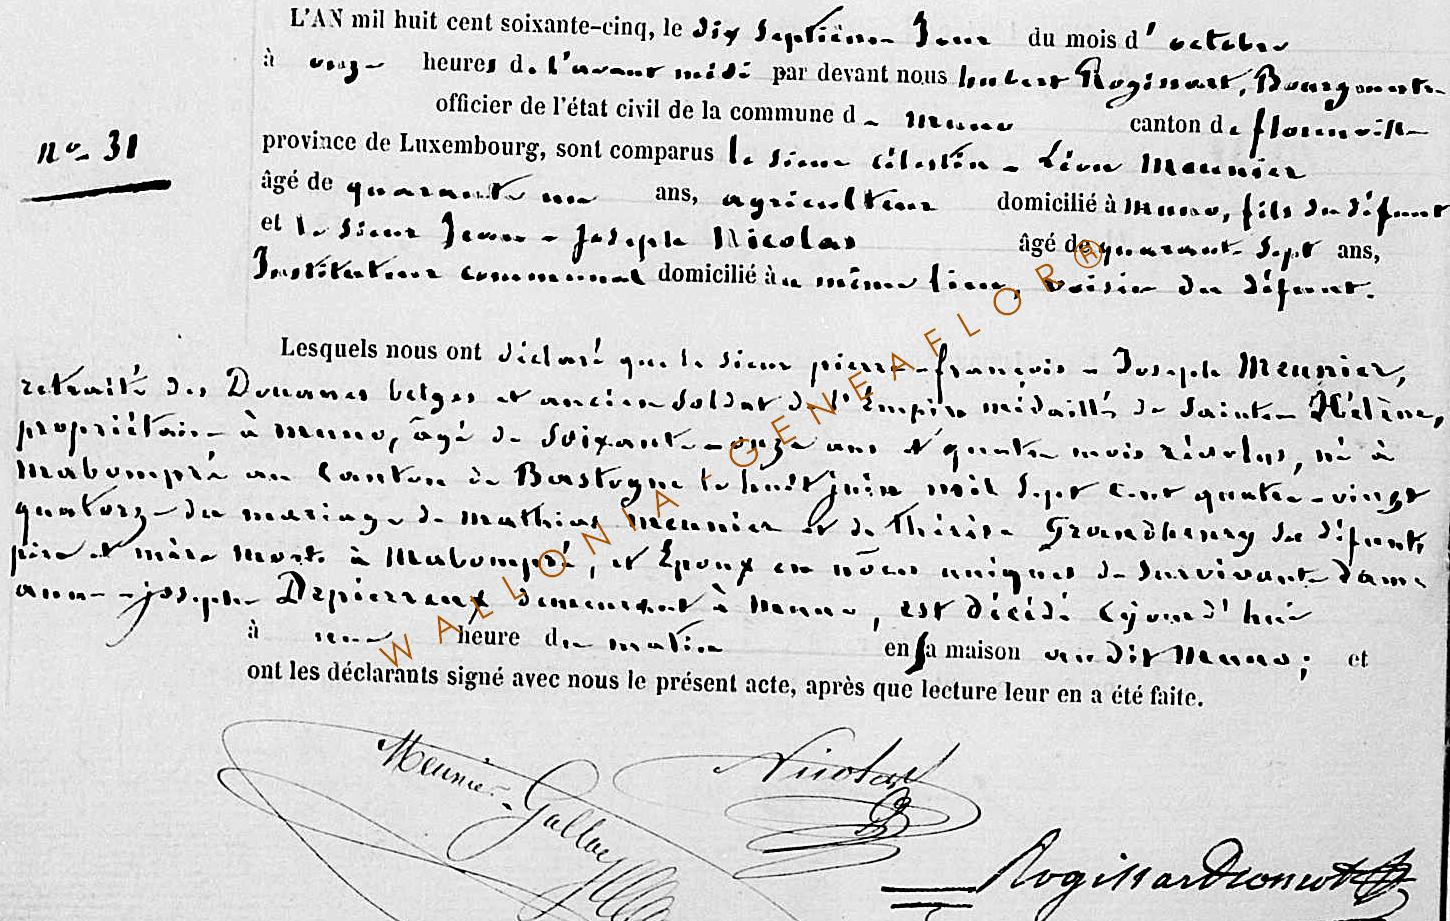 L'AN mil huit cent soixante-cinq, le dix septième Jour du mois d'octobre
à onze heures de l'avant midi par devant nous hubert Rogissart, Bourgmestre
officier de l'état civil de la commune de muno canton de florenville
n° 31
province de Luxembourg, sont comparus le sieur Célestin-Léon Meunier
âgé de quarante un ans, agriculteur domicilié à muno, fils du défunt
et le Sieur Jean-Joseph Nicolas âgé de quarante Sept ans,
Instituteur communal domicilié au même lieu, voisin du défunt.
Lesquels nous ont déclaré que le sieur pierre-françois-Joseph Meunier,
retraité des Douanes belges et ancien Soldat de l'Empire médaillé de Sainte Hélène,
propriétaire à muno, âgé de Soixante-onze ans et quatre mois révolus, né à
Mabompré au Canton de Bastogne le huit juin mil Sept cent quatre-vingt
quatorze du mariage de Mathias Meunier et de Thérèse Grandhenry de défunts
père et mère morts à Mabompré, et Epoux en nôces uniques de survivante dame
anne-joseph Depierreux demeurant à Muno, est décédé Cejourd'hui
à une heure du matin en sa maison au dit Muno; et
ont les déclarants signé avec nous le présent acte, après que lecture leur en a été faite.
Meunier-Nicolas
WALLONIA - GENEAFLOR®